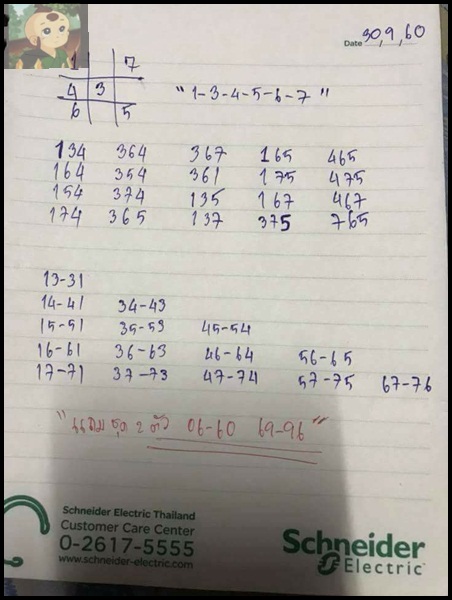 Date 30,9,60
1 7
4 3
6 5
"1-3-4-5-6-7"
134 364 367 165 465
164 354 361 175 475
154 374 135 167 467
174 365 137 375 765
13-31
14-41 34-43
15-51 35-53 45-54
16-61 36-63 46-64 56-65
17-71 37-73 47-74 57-75 67-76
"แถม ชุด 2 ตัว 06-60 69-96"
Schneider Electric Thailand
Customer Care Center
0-2617-5555
www.schneider-electric.com
Schneider
Electric